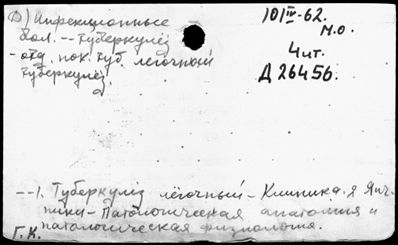 В) Инфекционные
бол. -- туберкулёз
-отд. пок. туб. легочный
туберкулёз.
10/IV-62.
М.О.
4 чт.
Д 26456.
--1. Туберкулёз лёгочный - Клиника. 2
- Патологическая анатомия и
патологическая физиология.
Г.К.